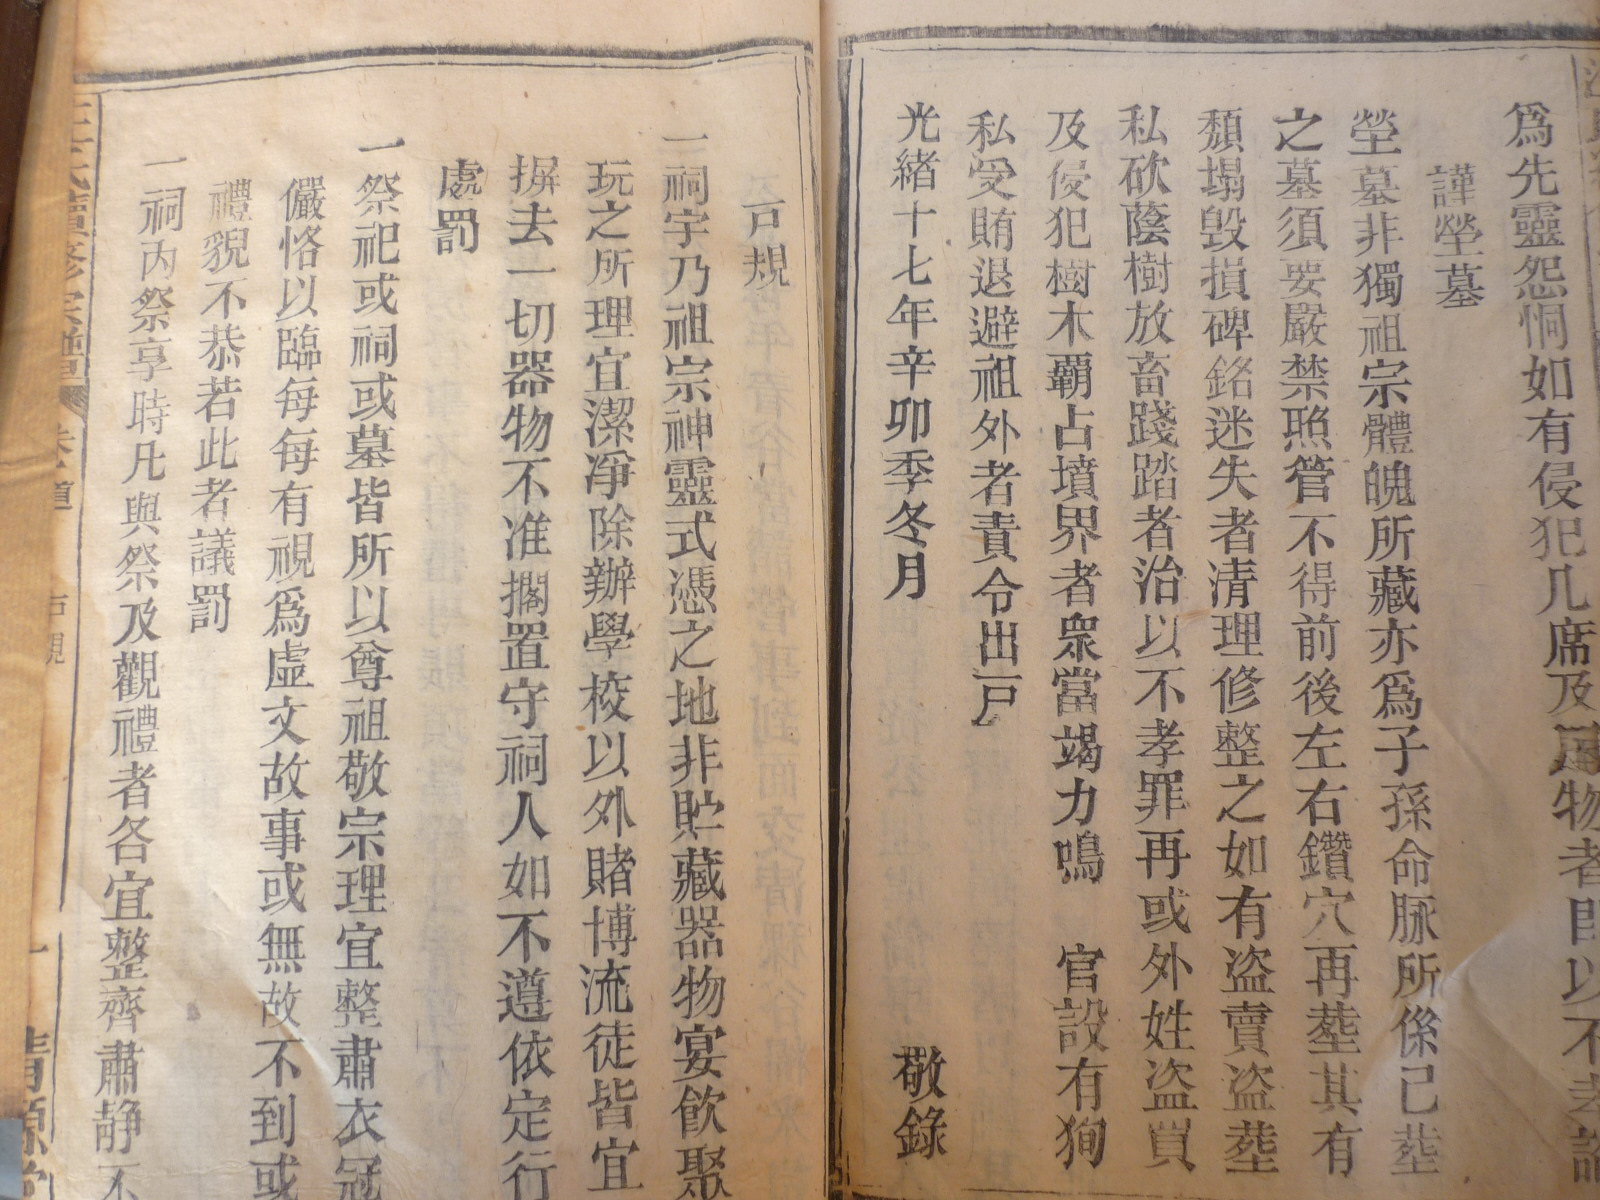 爲先靈怨恫如有侵犯几席及
物者
以不孝論
謹塋墓
塋墓非獨祖宗體魄所藏亦爲子孫命脉所係己塟
之墓須要嚴禁照管不得前後左右鑽穴再塟其有
頽塌毁損碑銘迷失者清理修整之如有盗賣盗塟
私砍蔭樹放畜踐踏者治以不孝罪再或外姓盗買
及侵犯樹木覇占墳界者衆當竭力鳴 官設有狥
私受賄退避祖外者責令出戸
光緒十七年辛卯季冬月 敬錄
戸規
一祠宇乃祖宗神靈式憑之地非貯藏器物宴飲聚
玩之所理宜潔凈除辦學校以外賭博流徒皆宜
摒去一切器物不准擱置守祠人如不遵依定行
處罰
一祭祀或祠或墓皆所以尊祖敬宗理宜整肅衣冠
儼恪以臨每每有視爲虛文故事或無故不到或
禮貌不恭若此者議罰
一祠内祭享時凡與祭及觀禮者各宜整齊肅静不
氏續修宗譜
戸規
一
清源堂